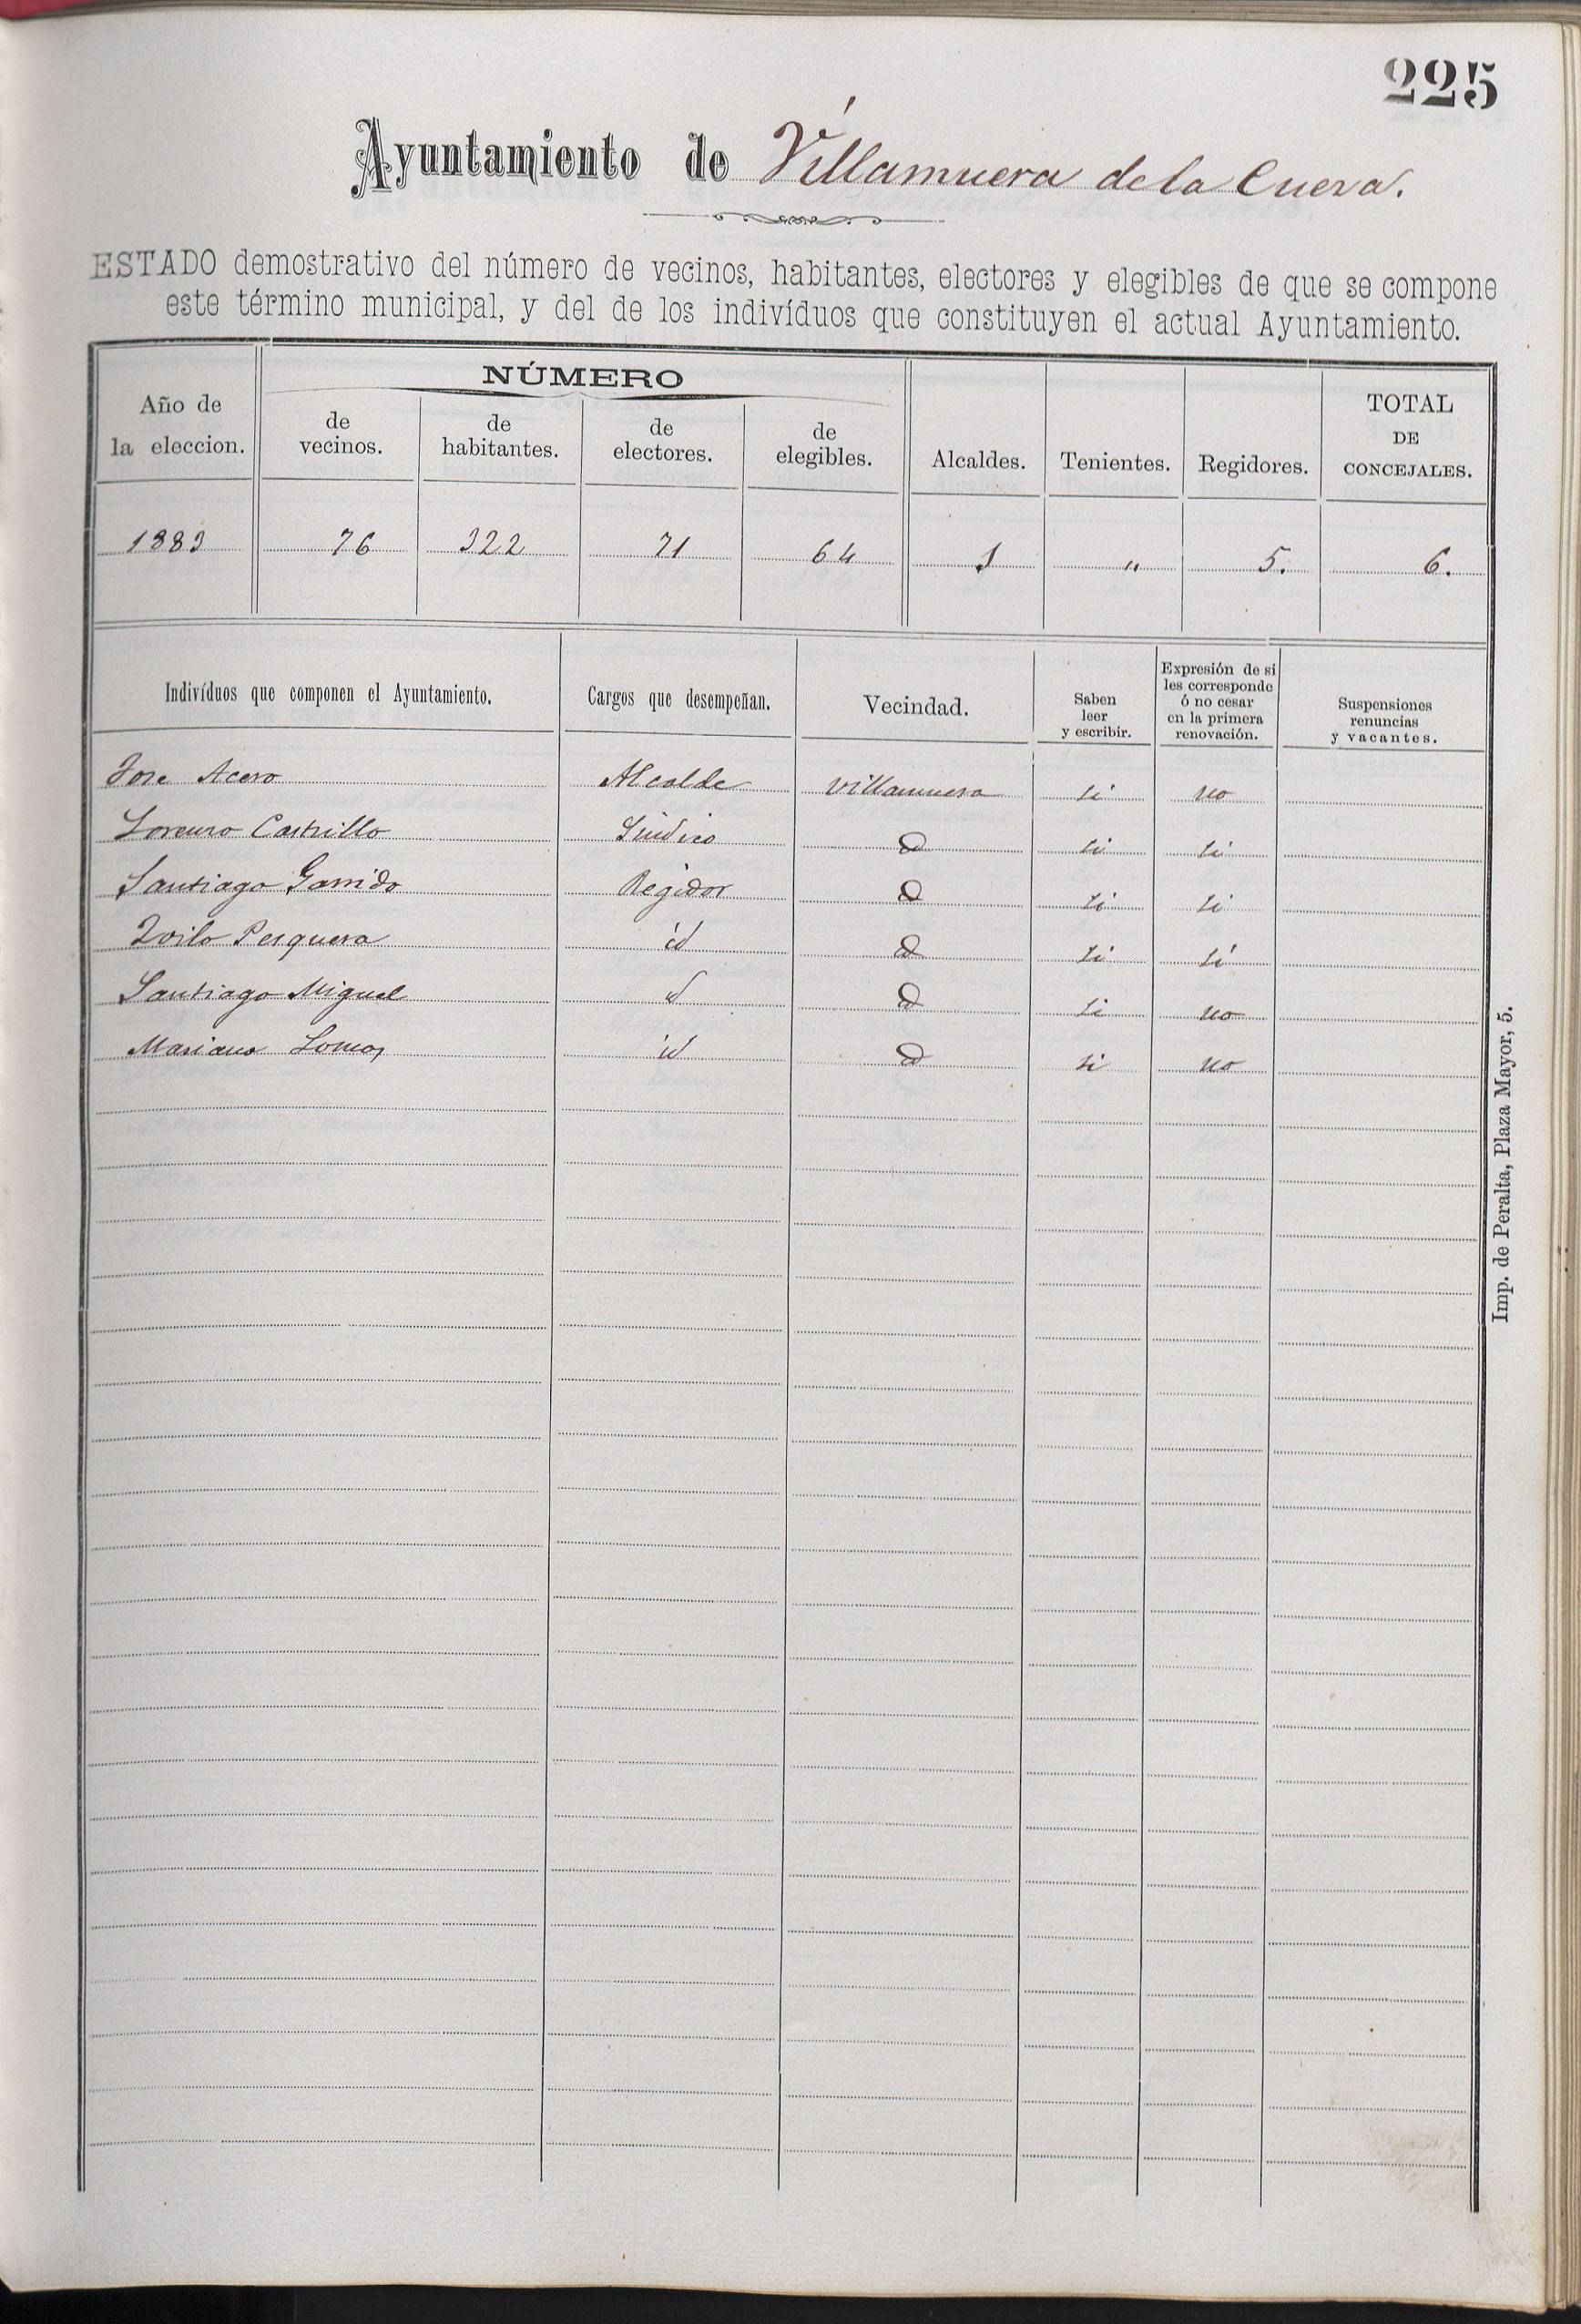 225
Ayuntamiento de Villamuera de la Cueva.
ESTADO demostrativo del número de vecinos, habitantes, electores y elegibles de que se compone
este término municipal, y del de los indivíduos que constituyen el actual Ayuntamiento.
Año de la eleccion. NÚMERO de vecinos. de habitantes. de electores. de elegibles. Alcaldes. Tenientes. Regidores. TOTAL DE CONCEJALES.
1883 76 322 71 64 1 " 5. 6.
Indivíduos que componen el Ayuntamiento. Cargos que desempeñan. Vecindad. Saben leer y escribir. Expresión de si les corresponde ó no cesar en la primera renovación. Suspensiones renuncias y vacantes.
Jose Acero Alcalde Villamuera si no
Lorenzo Castrillo Síndico id si si
Santiago Garrido Regidor id si si
Zoilo Pesquera id id si si
Santiago Miguel id id si no
Mariano Lomas id id si no
Imp. de Peralta, Plaza Mayor, 5.